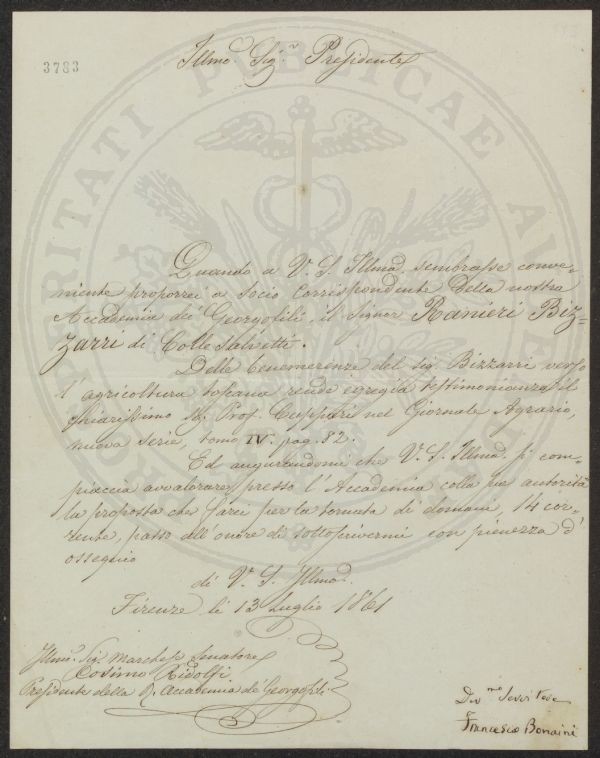 3783
Illmo. Sigr. Presidente
Quando a V. S. Illma. sembrasse conve-
niente proporrei a socio corrispondente della nostra
Accademia dei Georgofili, il signor Ranieri Biz-
zarri di Colle Salvetti.
Delle benemerenze del sig. Bizzarri verso
l'agricoltura toscana rende egregia testimonianza il
chiarissimo Sig. Prof. Cuppari nel Giornale Agrario,
nuova serie, tomo IV. pag. 82.
Ed augurandomi che V. S. Illma. si com-
piaccia avvalorare presso l'Accademia colla sua autorità
la proposta che farei per la tornata di domani, 14 cor-
rente, passo all'onore di sottoscrivermi con pienezza d'
ossequio
di V. S. Illma.
Firenze li 13 Luglio 1861
Illmo. Sig. Marchese Senatore
Cosimo Ridolfi
Presidente della R. Accademia de' Georgofili
Devmo Servitore
Francesco Bonaini
PROSPERITATI PUBLICAE AUGENDAE